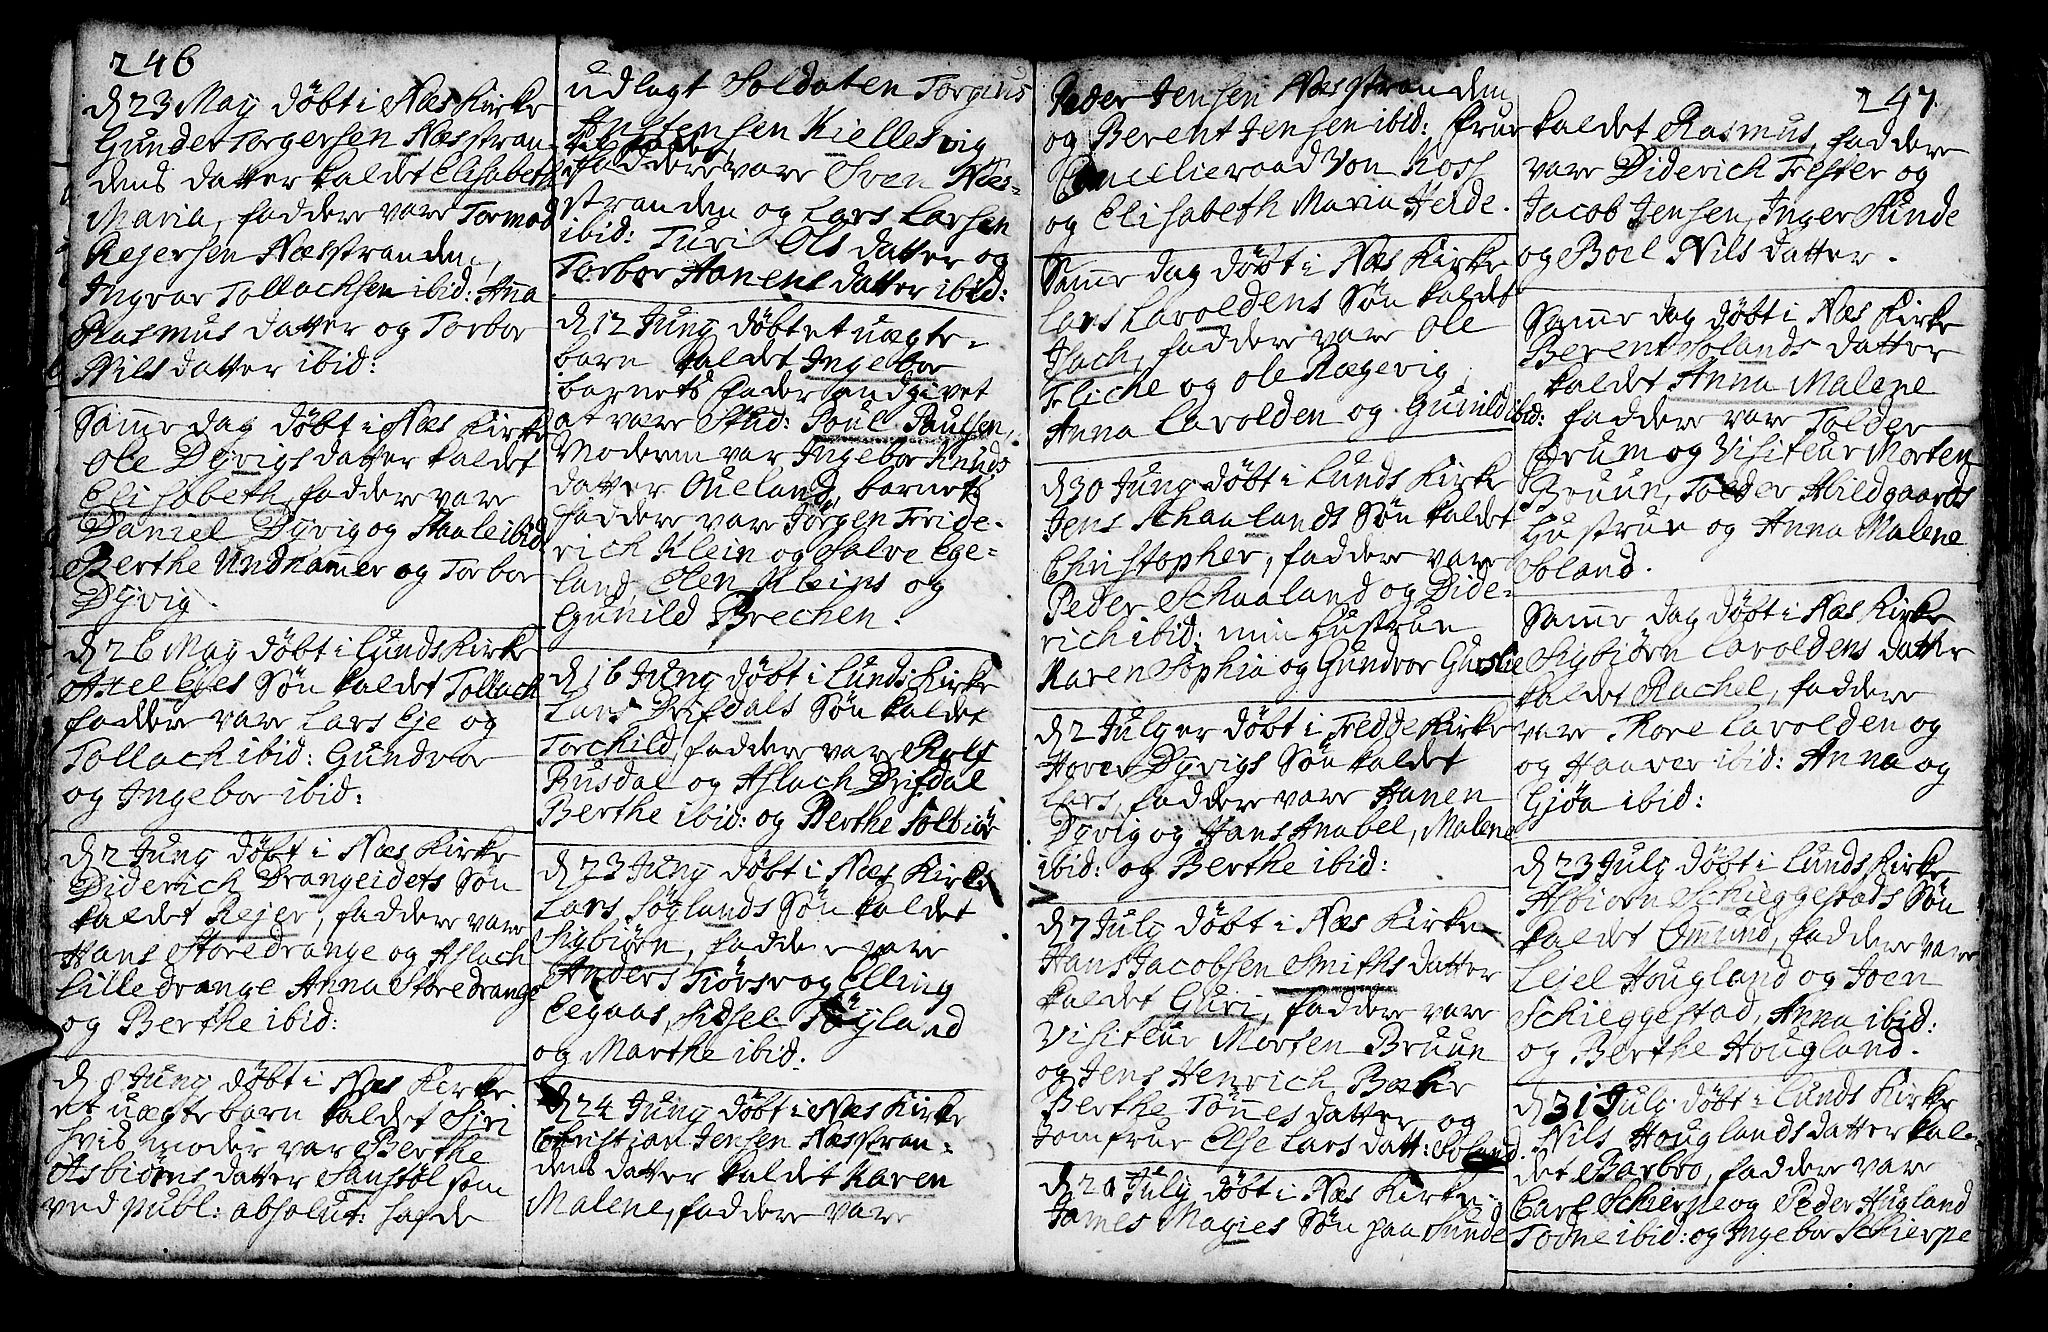 246
d 23 May döbt i Næs Kirke
Gunder Torgersen Næsstran-
dens datter kaldet Elisabeth
Maria, faddere vare Tormod
Rejersen Næsstranden,
Ingvar Tollachsen ibid: Anna
Rasmus datter og Torbor
Nils datter ibid:
Samme dag döbt i Næs Kirke
Ole Dyvigs datter kaldet
Elisabeth, faddere vare
Daniel Dyvig og Staale ibid
Berthe Undhammer og Torbor
Dyvig.
d 26 May döbt i Lunds Kirke
Axel Ejes Sön kaldet Tollach
faddere vare Lars Eje og
Tollach ibid: Gundvor
og Ingebor ibid:
d 2 Juny döbt i Næs Kirke
Diderich Drangeidets Sön
kaldet Rejer, faddere vare
Hans Storedrange og Aslach
Lilledrange Anna Storedrange
og Berthe ibid:
d 8 Juny döbt i Næs Kirke
et uægte barn kaldet Siri
hvis moder var Berthe
Asbiörns datter Sanstöl som
ved publ: absolut: hafde
udlagt Soldaten Torgius
Anstensen Kiellesvig
til fader,
faddere vare Sven Næs-
stranden og Lars Larsen
ibid: Turi Ols datter og
Torbor Hanens datter ibid:
d 12 Juny döbt et uægte
barn kaldet Ingebor
barnets fader andgivet
at vare Stud: Poul Paulsen,
Moderen var Ingebor Knuds
datter Oueland, barnets
faddere vare Jörgen Fride-
rich Klein og Salve Ege-
land, Elen Kleins og
Gunild Brechen.
d 16 Juny döbt i Lunds Kirke
Lars Drifdals Sön kaldet
Torchild, faddere vare Rolf
Rusdal og Aslach Drifdal
Berthe ibid: og Berthe Solbiör
d 23 Juny döbt i Næs Kirke
Lars Söylands Sön kaldet
Sigbiörn, faddere vare
Anders Tiörsv og Elling
Eegaas, Sidsel Söyland
og Marthe ibid:
d 24 Juny döbt i Næs Kirke
Christian Jensen Næsstran-
dens datter kaldet Karen
Malene, faddere vare
Peder Jensen Næsstranden
og Berent Jensen ibid: Frue
Cancelieraad Von Koss
og Elisabeth Maria Heide.
Samme dag döbt i Næs Kirke
Lars Lavoldens Sön kaldet
Isach, faddere vare Ole
Fliche og Ole Rægevig
Anna Lavolden og Gunild ibid:
d 30 Juny döbt i Lunds Kirke
Jens Schaalands Sön kaldet
Christopher, faddere vare
Peder Schaaland og Dide-
rich ibid: min Hustrue
Karen Sophia og Gundvor Guslie
d 2 July er döbt i Fedde Kirke
Hover Dyvigs Sön kaldet
Lars, faddere vare Hanen
Dyvig og Hans Anabel, Malene
ibid: og Berthe ibid:
d 7 July döbt i Næs Kirke
Hans Jacobsen Smiths datter
kaldet Guri, faddere vare
Visiteur Morten Bruun
og Jens Henrich Beker
Berthe Tönnes datter og
Jomfrue Else Lars datt: Loland.
d 20 July döbt i Næs Kirke
James Magies Sön paa Sunde
247.
kaldet Rasmus, faddere
vare Diderich Fester og
Jacob Jensen, Inger Sunde
og Boel Nils datter.
Samme dag döbt i Næs Kirke
Berent Lolands datter
kaldet Anna Malene
faddere vare Tolder
Crum og Visiteur Morten
Bruun, Tolder Hildgaards
Hustrue og Anna Malene
Loland.
Samme dag döbt i Næs Kirke
Sigbiörn Lavoldens datter
kaldet Rachel, faddere
vare Tore Lavolden og
og Haaver ibid: Anna og
Gjöa ibid:
d 23 July döbt i Lunds Kirke
Asbiörn Schieggestads Sön
kaldet Omund, faddere vare
Lejel Hougland og Joen
Schieggestad, Anna ibid:
og Berthe Hougland.
d 31 July döbt i Lunds Kirke
Nils Houglands datter kal-
det Barbro, faddere vare
Carl Schierpe og Peder Hugland
Todne ibid: og Ingebor Schierpe